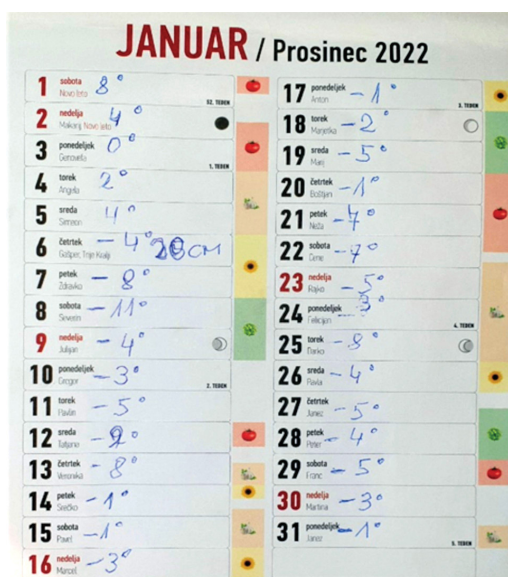 JANUAR / Prosinec 2022
1 sobota 8°
Novo leto
52. TEDEN
2 nedelja 4°
Makarij, Novo leto
3 ponedeljek 0°
Genovefa
1. TEDEN
4 torek 2°
Angela
5 sreda 4°
Simeon
6 četrtek -4° 20 CM
Gašper, Trije Kralji
7 petek -8°
Zdravko
8 sobota -11°
Severin
9 nedelja -4°
Julijan
10 ponedeljek -3°
Gregor
2. TEDEN
11 torek -5°
Pavlin
12 sreda -9°
Tatjana
13 četrtek -8°
Veronika
14 petek -1°
Srečko
15 sobota -1°
Pavel
16 nedelja -3°
Marcel
17 ponedeljek -1°
Anton
3. TEDEN
18 torek -2°
Marjetka
19 sreda -5°
Marij
20 četrtek -1°
Boštjan
21 petek -7°
Neža
22 sobota -7°
Cene
23 nedelja -5°
Rajko
24 ponedeljek -3°
Felicijan
4. TEDEN
25 torek -8°
Darko
26 sreda -4°
Pavla
27 četrtek -5°
Janez
28 petek -4°
Peter
29 sobota -5°
Franc
30 nedelja -3°
Martina
31 ponedeljek -1°
Janez
5. TEDEN